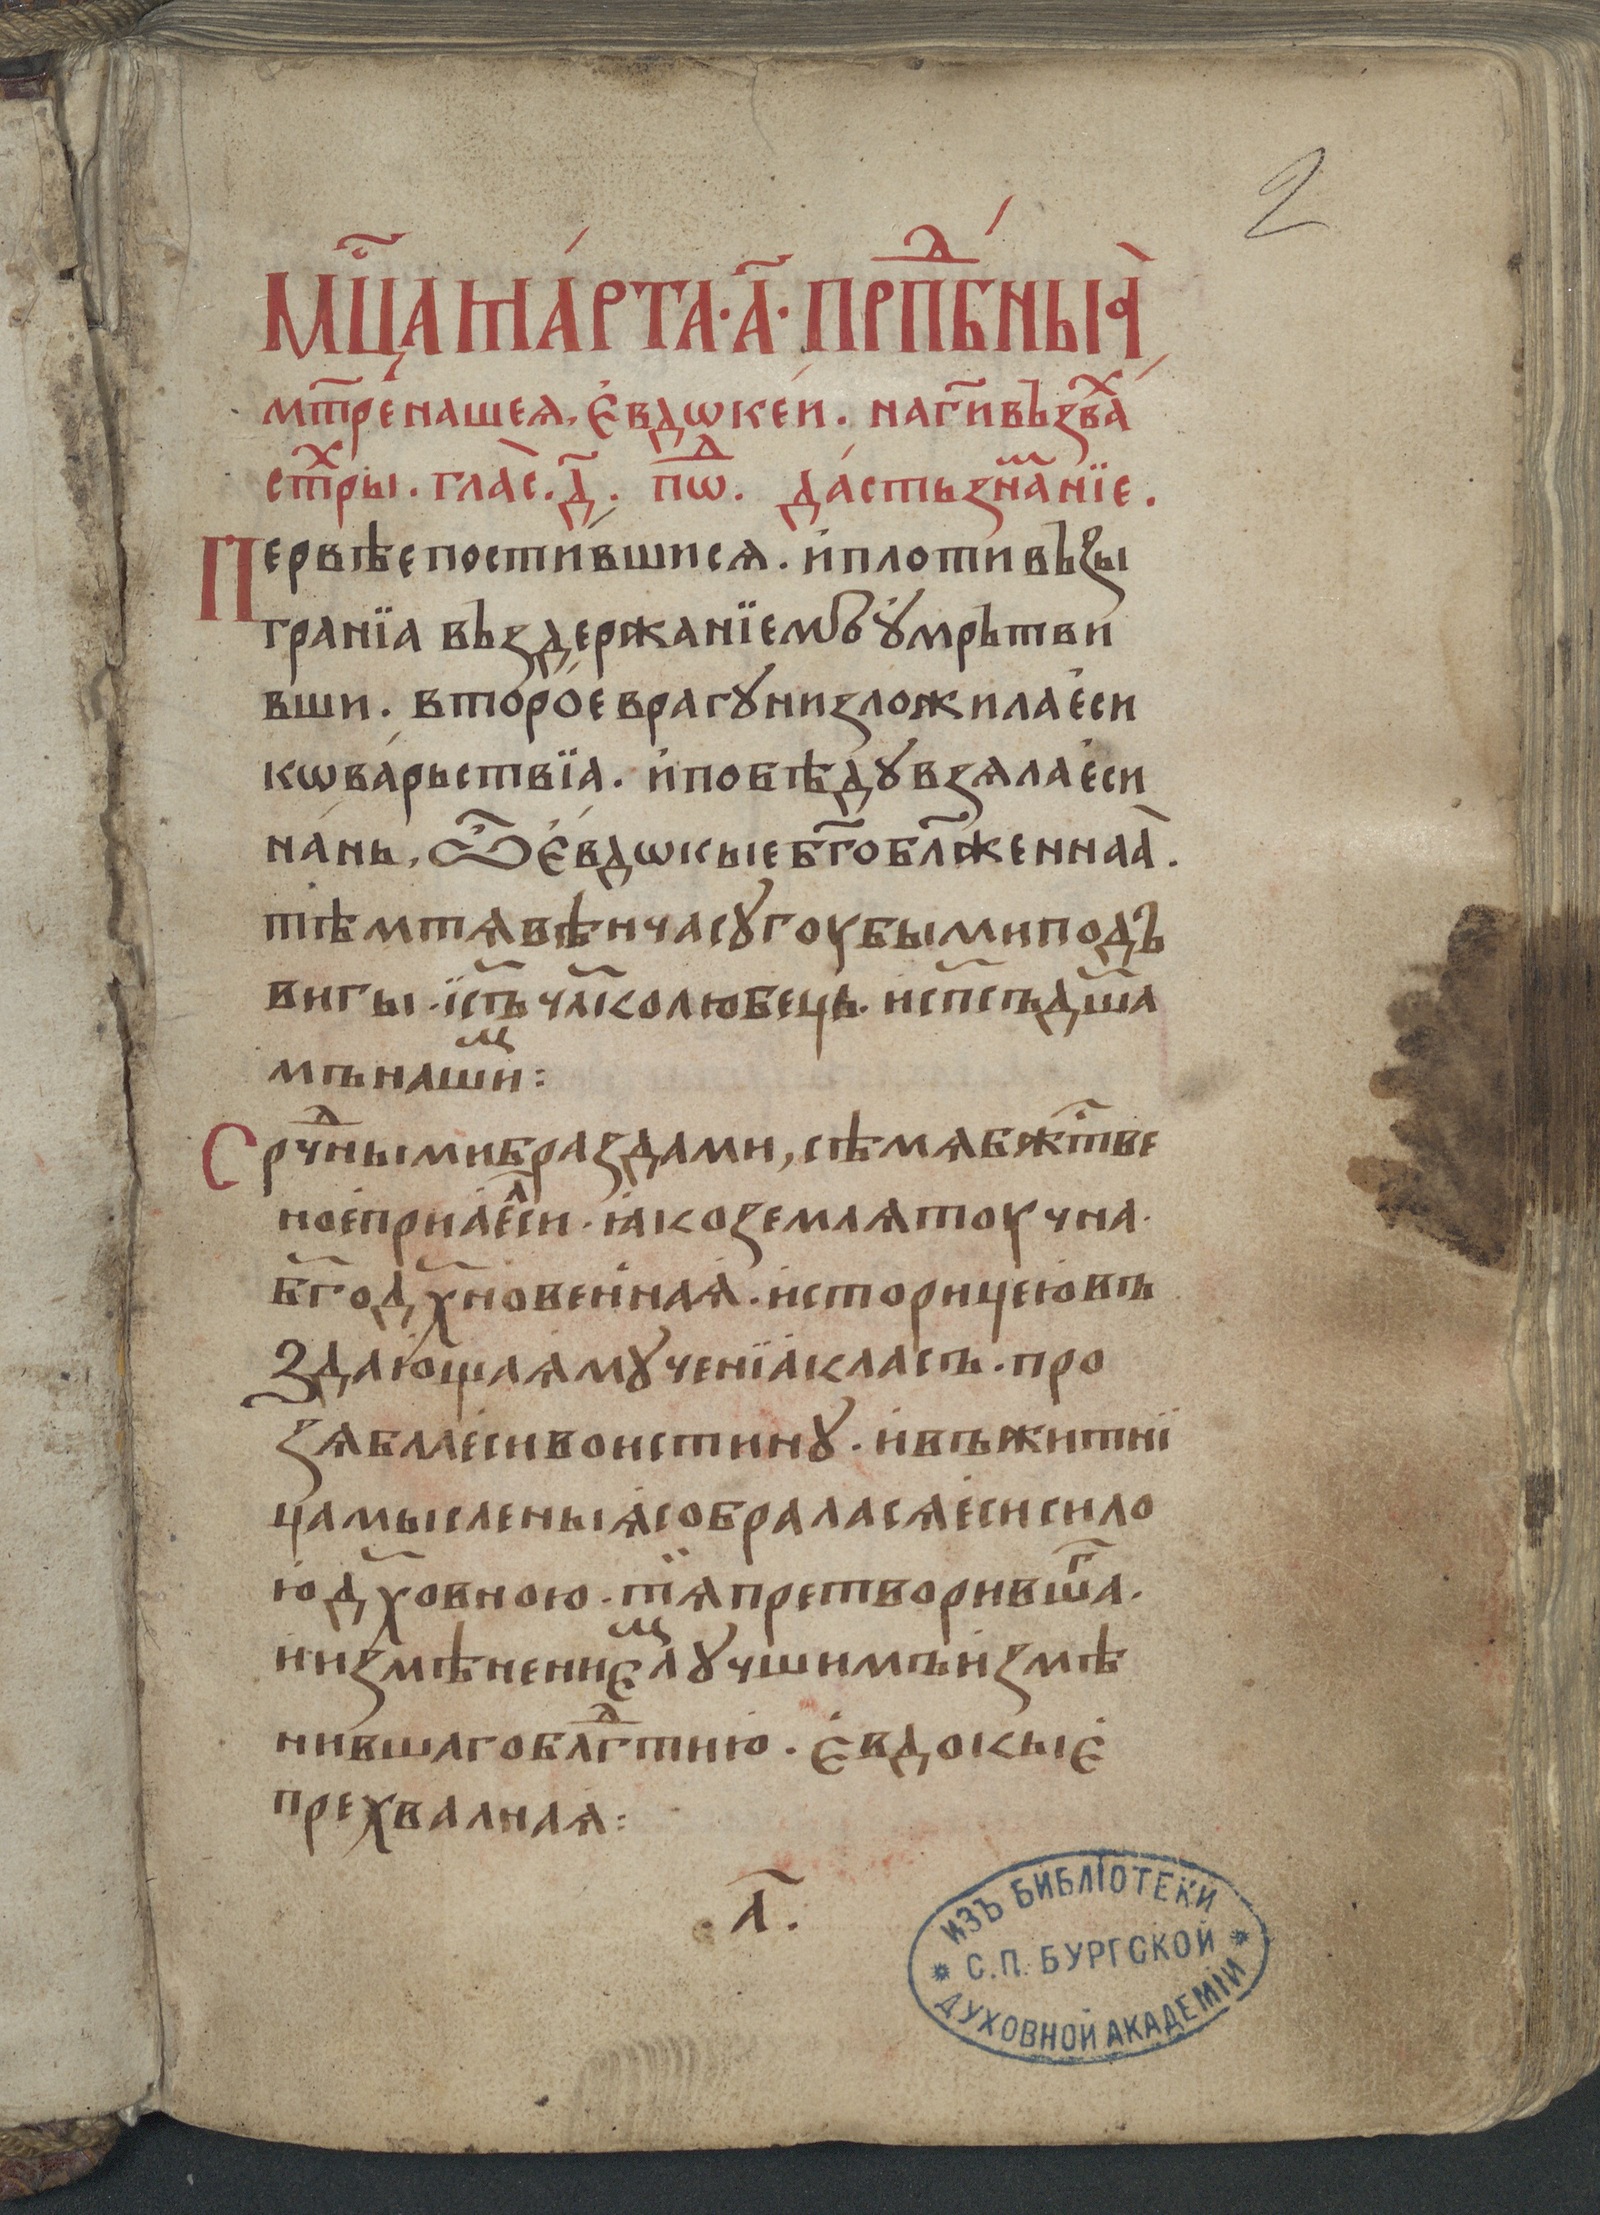 2
мц҃а ма́рта · а҃ · прпⷣбны́ѧ
мт҃ре нашеѧ . є҆вдѡке́и . на г҃и възва́ⷯ
стⷯры . гла́с . д҃ . поⷣ . да́сть зна́мⷨнїе .
Первѣе постившисѧ . и҆ плоти възы
гранїа въздержанїемъ ᲂумрътви
вши . второ́е врагꙋ низложила є҆си
кѡва́рьствїа . и҆ побѣдꙋ взѧла є҆си
на́нь , ѿ є҆вдѡкые бг҃обл҃женнаа .
тѣм тѧ вѣнча сꙋгоубыми подъ
вигы . їс҃ъ чл҃колюбець . и сп҃съ дш҃а
мъ нашиⷨ :
Срⷣчными браздами , сѣмѧ бжт҃ве
ное приаⷧ е҆си . ꙗко землѧ тоучна .
бг҃одх҃новеннаѧ . историцею въ
здающаѧ мꙋченїа класъ . про
зѧбла еси воистинꙋ . и въ житнї
ца мысленыѧ собраласѧ е҆си сило
ю дх҃овною . тїѧ претворившаⷢ .
и измѣнениеⷨ лꙋчшимъ измѣ
нившаго блгⷣтию . є҆вдокыє
прехвалнаѧ :
. а҃ .
ИЗЪ БИБЛІОТЕКИ
* С.П. БУРГСКОЙ *
ДУХОВНОЙ АКАДЕМІИ